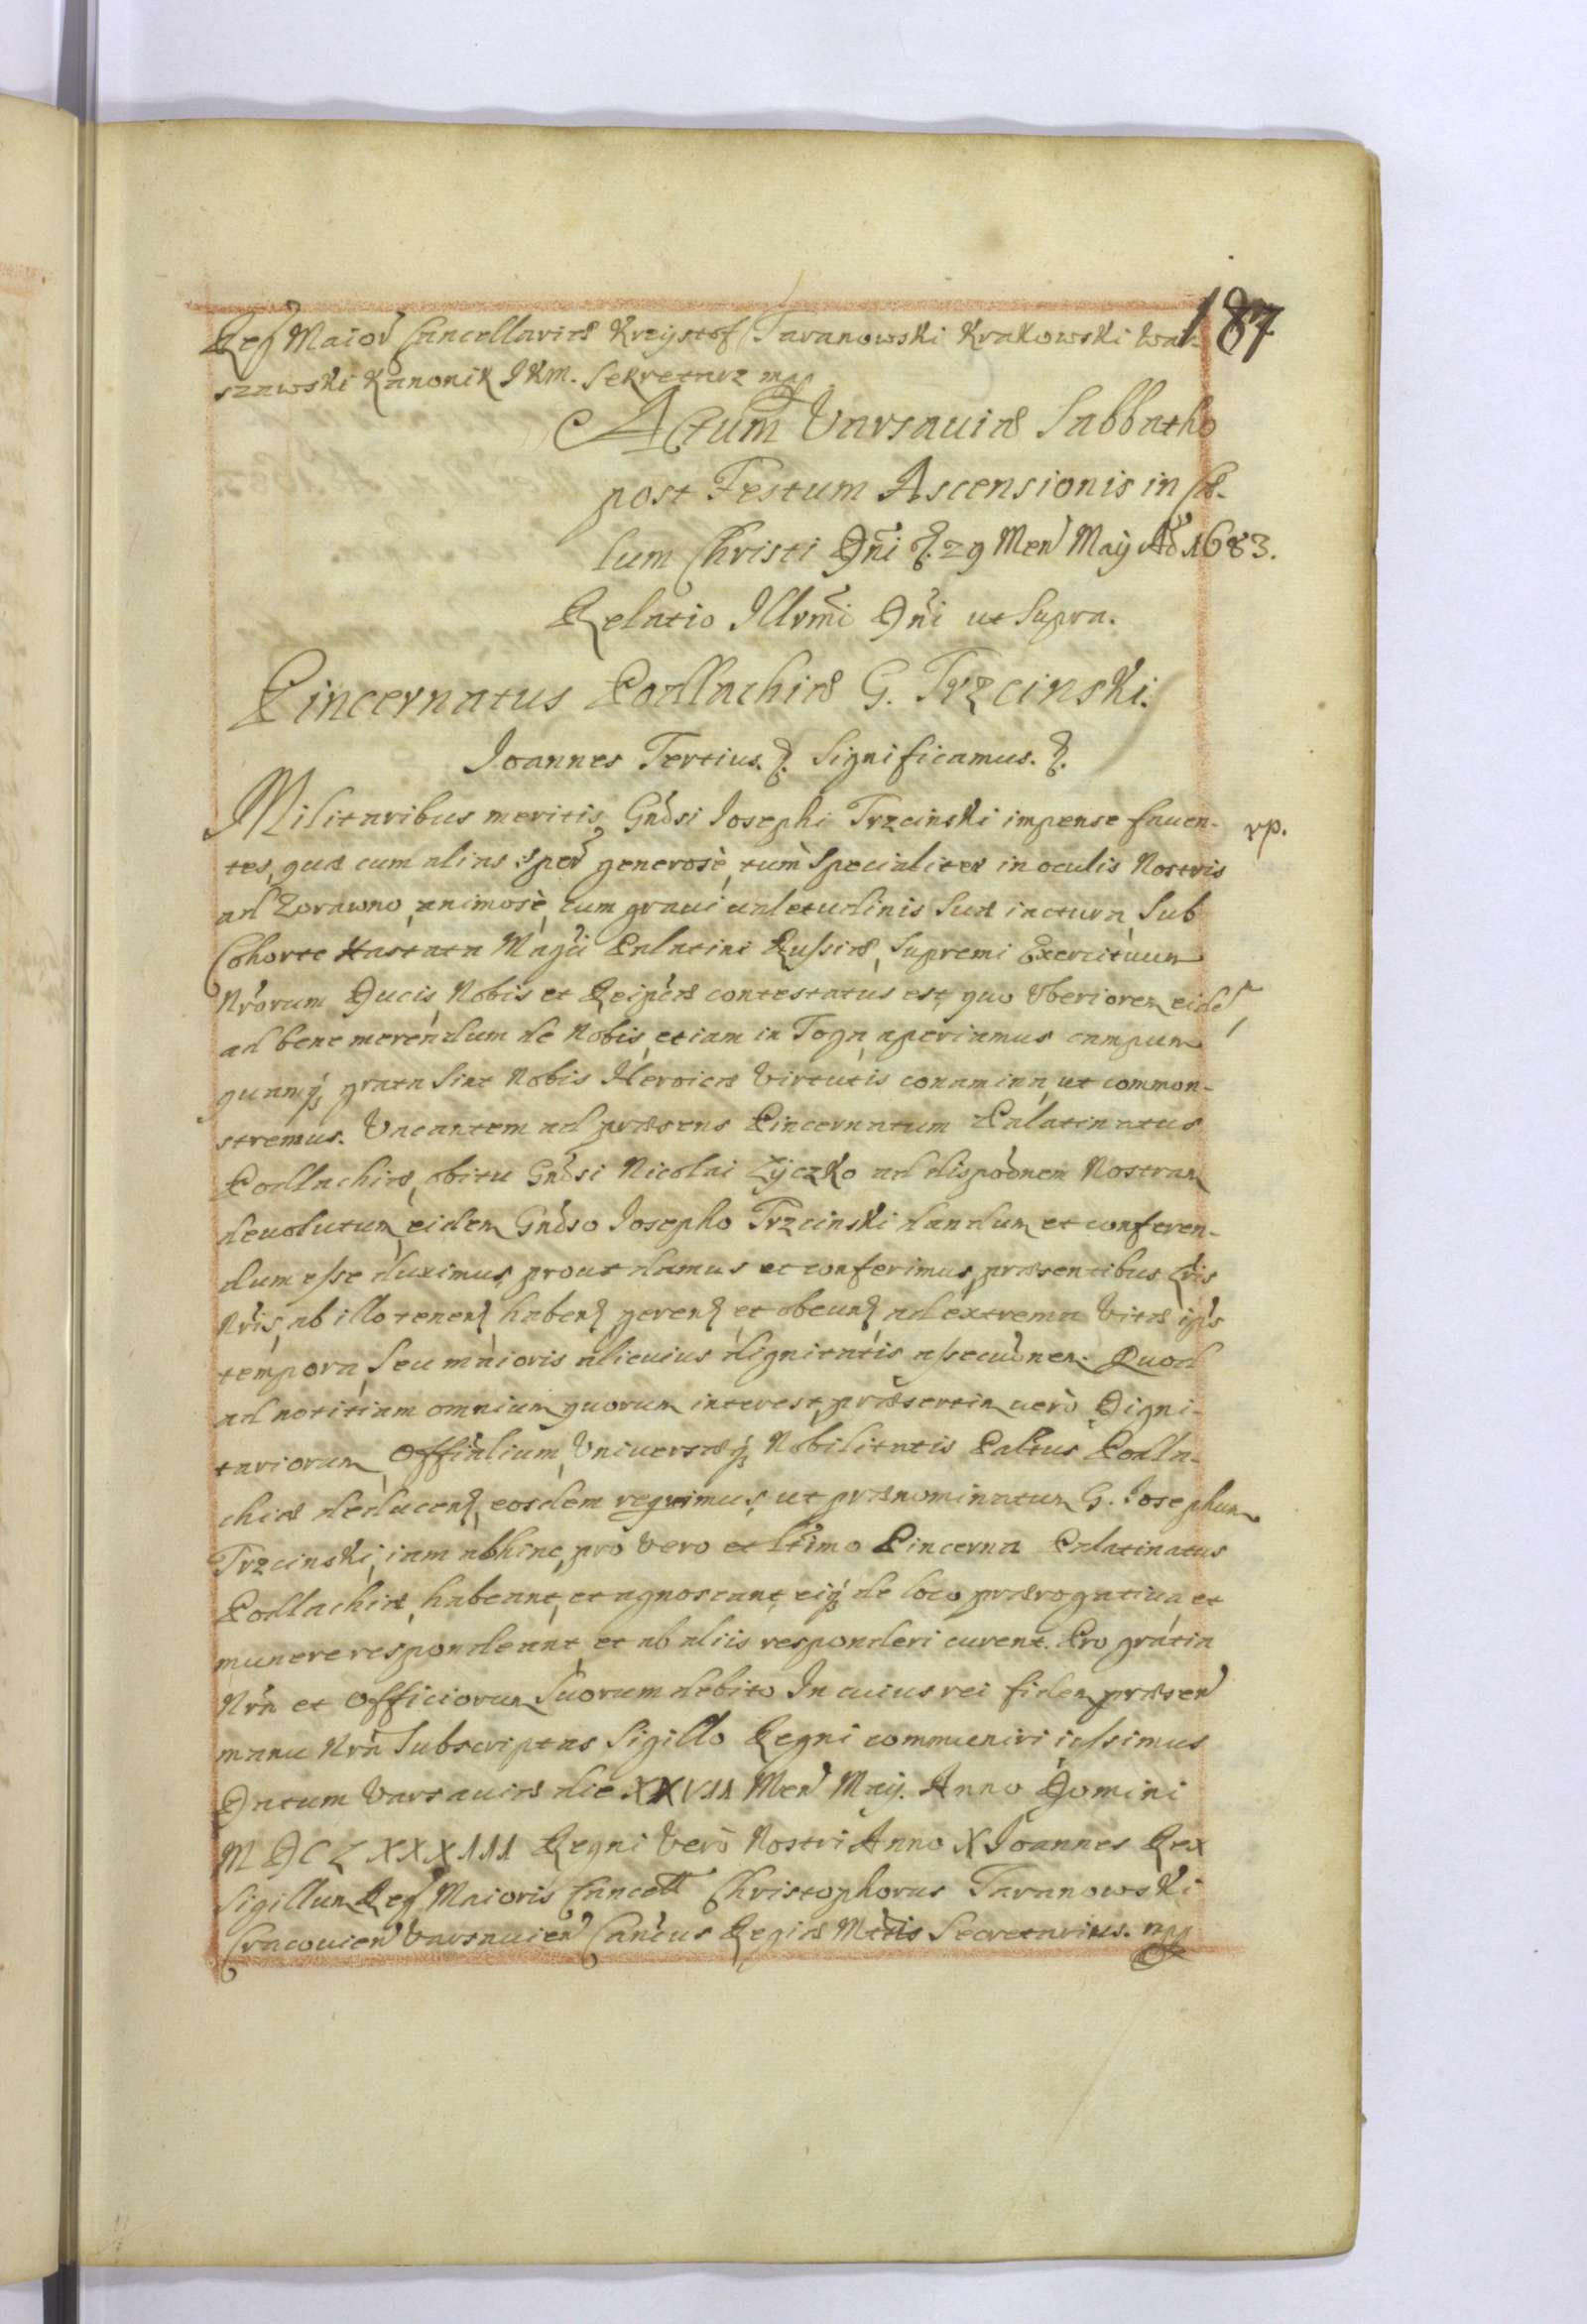 187
Reg Maior Cancellariæ Krzysztof Taranowski Krakowski War-
szawski Kanonik JKM. Sekretarz mp
Actum Varsaviæ Sabbatho
post Festum Ascensionis in Cæ-
lum Christi Dñi &. 29 Men Maÿ Aõ 1683.
Relatio Illrmi Dñi ut Supra.
Pincernatus Podlachiæ G. Trzcinski.
Joannes Tertius. &. Significamus. &.
Militaribus meritis Gnosi Josephi Trzcinski impense faven-
rp.
tes, quæ cum alias generosè, tum Specialiter in oculis Nostris
ad Zorawno, animosè, cum gravi valetudinis Suæ iactura, Sub
Cohorte Hastata Magci Palatini Russiæ, Supremi Exercituum
Nrorum Ducis, Nobis et Reipcæ contestatus est, quo Uberiorem eidē
ad bene merendum de Nobis, etiam in Toga, aperiamus campum
quamq, grata Sint Nobis Heroicæ Virtutis conamina, ut common-
stremus. Vacantem ad præsens Pincernatum Palatinatus
Podlachiæ, obitu Gnosi Nicolai Zÿczko ad dispoõnem Nostram
devolutum, eidem Gnoso Josepho Trzcinski dandum et conferen-
dum esse duximus, prout damus et conferimus, præsentibus Lris
Nris, ab illo tenen haben geren et obeun ad extrema Vitæ ips
tempora, Seu maioris alicuius dignitatis assecuõnem. Quod
ad notitiam omnium quorum interest, præsertim verò Digni-
tariorum, Offialium, Universæq Nobilitatis Paltus Podla-
chiæ deducen, eosdem requimus, ut prænominatum G. Josephum
Trzcinski, iam abhinc, pro Vero et Ltimo Pincerna Palatinatus
Podlachiæ, habeant, et agnoscant, eiq de loco prærogativa, et
munere respondeant, et ab aliis responderi curent. Pro gratia
Nra et Officiorum Suorum debito In cuius rei fidem præsen
manu Nra Subscriptas Sigillo Regni communiri iussimus
Datum Varsaviæ die XXVII Men Maÿ. Anno Domini
M DC L XXXIII Regni Verò Nostri Anno X Joannes Rex
Sigillum Reg Maioris Cancell Christophorus Taranowski
Cracovien Varsavien Canõus Regiæ Mttis Secretarius. mp